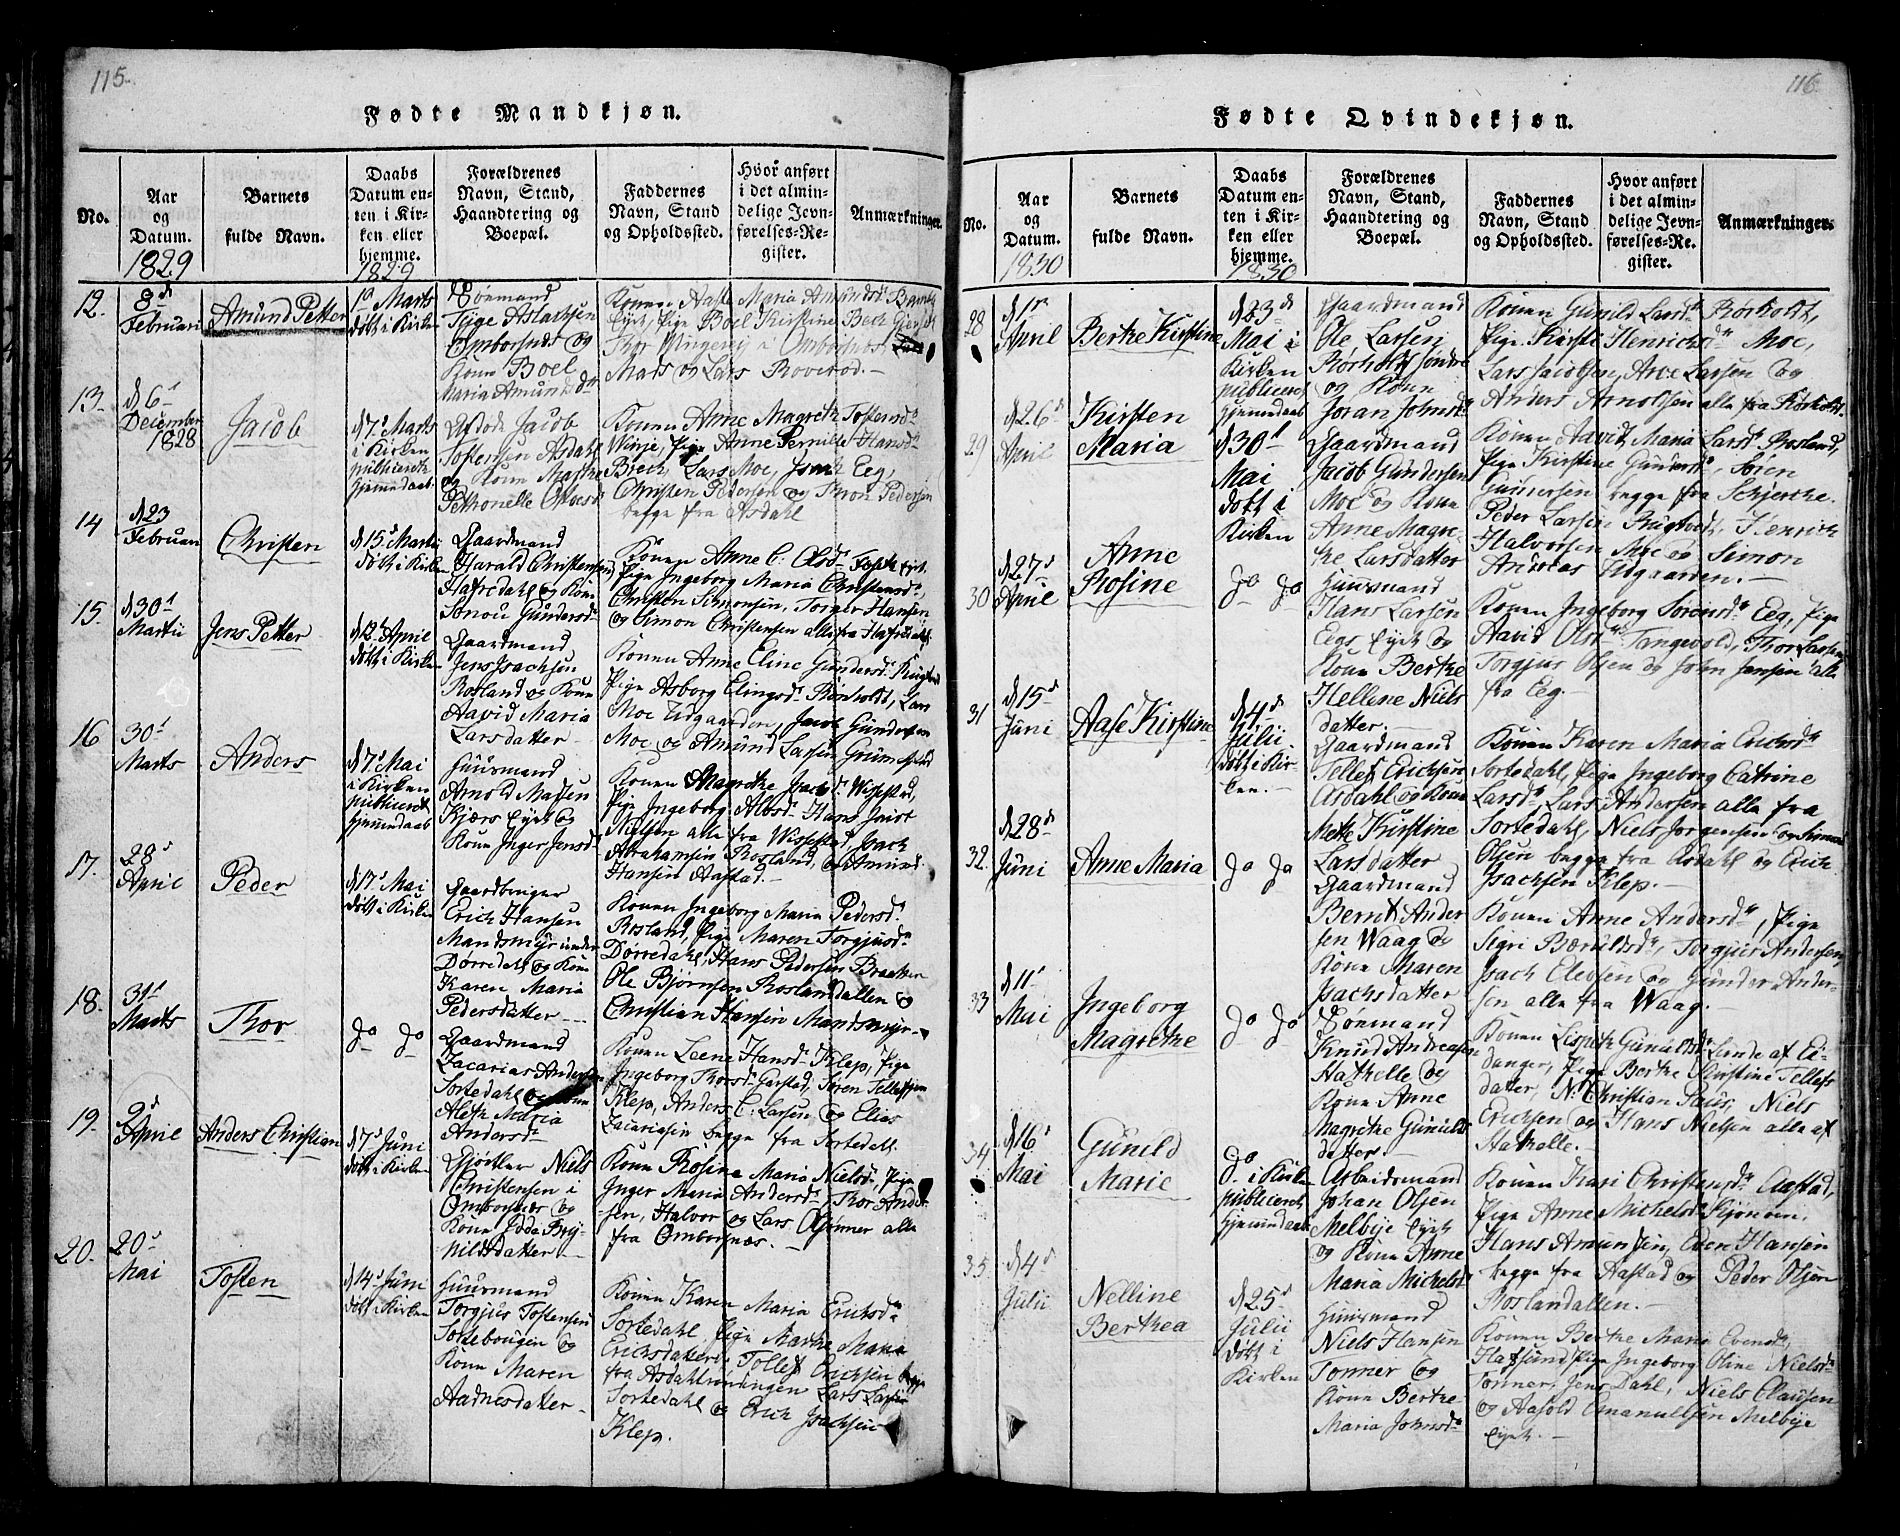 115.
Fødte Mandkjøn.
No.
Aar
og
Datum.
1829
Barnets
fulde Navn.
Daabs
Datum en-
ten i Kir-
ken eller
hjemme.
1829
Forældrenes
Navn, Stand,
Haandtering og
Boepæl.
Faddernes
Navn, Stand
og Opholdssted.
Hvor anført
i det almin-
delige Jevn-
førelses-Re-
gister.
Anmærkninger.
12.
8d
Februari
Amund Petter
1d Marts
døbt i Kirken
Sømand
Tyge Aslachsen
Omborsnæs og
Kone Boel
Maria Amundsdr
Konen Aase Maria Amundsdr
Pige Boel Kirstine Bech
Omborsnæs
Mads og Lars Roverød.
13.
d 6t
December
1828
Jacob
d 7d Marts
i Kirken
publiceret
hjemmedaab
Afdøde Jacob
Tostensen Asdahl
og Kone Marthe
Pethronelle
Konen Anne Magreth Tostensdr
Pige Anne Pernille Hansdr
Lars Moe, Eeg,
Christen Pedersen og Thron Pedersen
begge fra Asdahl
14
d 23
Februari
Christen
d 15d Martii
døbt i Kirken
Gaardmand
Harald Christensen
Hafredahl og Kone
Gundersdr
Konen Anne C. Olsdr
Pige Ingeborg Maria Christensdr,
Christen Simonsen, Torger Hansen
og Simon Christensen alle fra Hafredahl
15.
d 30t
Martii
Jens Petter
d 12t April
døbt i Kirken
Gaardmand
Jens Isachsen
Rosland og Kone
Aavid Maria
Larsdatter
Konen Anne Eline Gundersdr
Pige Asborg Elingsdr Rønholdt, Lars
Moe Udgaarden, Jacob Gundersen
Moe og Amund Larsen
16
30t
Marts
Anders
d 7d Mai
i Kirken
publiceret
hjemmedaab
Huusmand
Arnold Matsen
Kjærs Eyet og
Kone Inger Jensdr
Konen Magrethe Isachdr Wissestad,
Pige Ingeborg
Nielsen alle fra Wissestad, Isach
Abrahamsen Rosland, og Amund
Hansen Aastad.
17.
28d
April
Peder
d 17d Mai
døbt i Kirken
Gaardbruger
Erich Hansen
Mandsmyr under
Dørredahl og Kone
Karen Maria
Pedersdatter
Konen Ingeborg Maria Pedersdr
Rosland, Pige Maren Torgjusdr
Dørredahl, Hans Pedersen Braathen
Ole Bjørnsen Roslandallen og
Christian Hansen Mandsmyr
18.
31t
Marts
Thor
do do
Gaardmand
Zacarias Andersen
Sortedahl og Kone
Aleth Maria
Andersdr
Konen Leene Hansdr Klep, Pige
Ingeborg Thorsdr Garstad, Søren Tellefsen
Klep, Anders C. Larsen og Elias
Zacariasen begge fra Sortedahl
19.
9d
April
Anders Christian
d 7d Juni
døbt i Kirken
Niels
Christensen i
Omborsnæs og
Kone
datter
Kone Rosine Maria Nielsdr, Pige
Inger Maria Andersdr Thor Ander-
sen, Halvor og Lars alle
fra Omborsnæs.
20.
20d
Mai
Tosten
d 14d Juni
døbt i Kirken
Huusmand
Torgjus Tostensen
Sortebougen og
Kone Maren
Aadnesdatter
Konen Karen Maria Erichsdr
Sortedahl, Pige Marthe Maria
Erichsdatter, Tollef Erichsen begge
fra Asdahl Lars Larsen
Sortedahl og Erich Isachsen
Klep.
116
Fødte Qvindekjøn.
No.
Aar
og
Datum.
1830
Barnets
fulde Navn.
Daabs
Datum en-
ten i Kir-
ken eller
hjemme.
1830
Forældrenes
Navn, Stand,
Haandtering og
Boepæl.
Faddernes
Navn, Stand
og Opholdssted.
Hvor anført
i det almin-
delige Jevn-
førelses-Re-
gister.
Anmærkninger.
28
April
Berthe Kirstine
d 23d
Mai i
Kirken
publiceret
hjemmedaab
Gaardmand
Ole Larsen
Rørholdt søndre
og Kone
Joran Johnsdr
Konen Gunild Larsdr Rørholdt,
Pige Kirsti Henrichsdr Moe,
Lars Jacobsen, Arve Larsen og
Anders Arnoldsen alle fra Rørholdt.
29
d 26d
April
Kirsten
Maria
d 30d
Mai
døbt i
Kirken
Gaardmand
Jacob Gundersen
Moe og Kone
Anne Magre-
the Larsdatter
Konen Aavid Maria Larsdr Rosland,
Pige Kirstine Gundersdr, Søren
Gundersen begge fra
Peder Larsen Henrich
Halvorsen Moe og Simon
Andreas Udgaarden.
30
d 27d
April
Anne
Rosine
do do
Huusmand
Hans Larsen
Eegs Eyet og
Kone Berthe
Hellene Niels
datter.
Konen Ingeborg Sørensdr Eeg, Pige
Aavid Olsdr Tangevold, Thor Larsen
Torgjus Olsen og John Jensen alle
fra Eeg.
31
d 15d
Juni
Aase Kirstine
d 4d
Julii
døbt i Kir-
ken.
Gaardmand
Tellef Erichsen
Asdahl og Kone
Mette Kirstine
Larsdatter
Konen Karen Maria Erichsdr
Sortedahl, Pige Ingeborg Catrine
Larsdr, Lars Andersen alle fra
Sortedahl, Niels Jørgensen og
Olsen begge fra Asdahl og Erich
Isachsen Klep.
32.
d 28d
Juni
Anne Maria
do do
Gaardmand
Bernt Ander
sen Waag og
Kone Maren
Isachsdatter
Konen Anne Andersdr, Pige
Sigri Torgjus Andersen,
Isach Ellevsen og Gunder Ander-
sen alle fra Waag.
33
d 11t
Mai
Ingeborg
Magrethe
do do
Sømand
Knud Andreasen
Aathelle og
Kone Anne
Magrethe Gunuld
datter.
Konen Lisbeth Gunuldsdr Lunde af Ei-
danger, Pige Berthe Kirstine Tellefs
datter, N: Christian Paus, Niels
Erichsen og Hans Nielsen alle af
Aathelle.
34
d 16d
Mai
Gunild
Marie
do
d. i Kirken
publiceret
hjemmedaab
Arbeidsmand
Johan Olsen
Melbye Eyet
og Kone Anne
Maria Michelsdr
Konen Kari Christensdr Aastad,
Pige Anne Michelsdr
Hans Amundsen, Even Hansen
begge fra Aastad og Peder Olsen
Roslandallen.
35
d 4d
Julii
Nelline
Berthea
d 25d
Julii
døbt i
Kirken
Huusmand
Niels Hansen
Tonner og
Kone Berthe
Maria Johnsdr
Konen Berthe Maria Evensdr,
Hafsund, Pige Ingeborg Oline Nielsdr
Tonner, Jens Dahl, Niels Clausen
og Aasold Emanuelsen Melbye
Eyet.